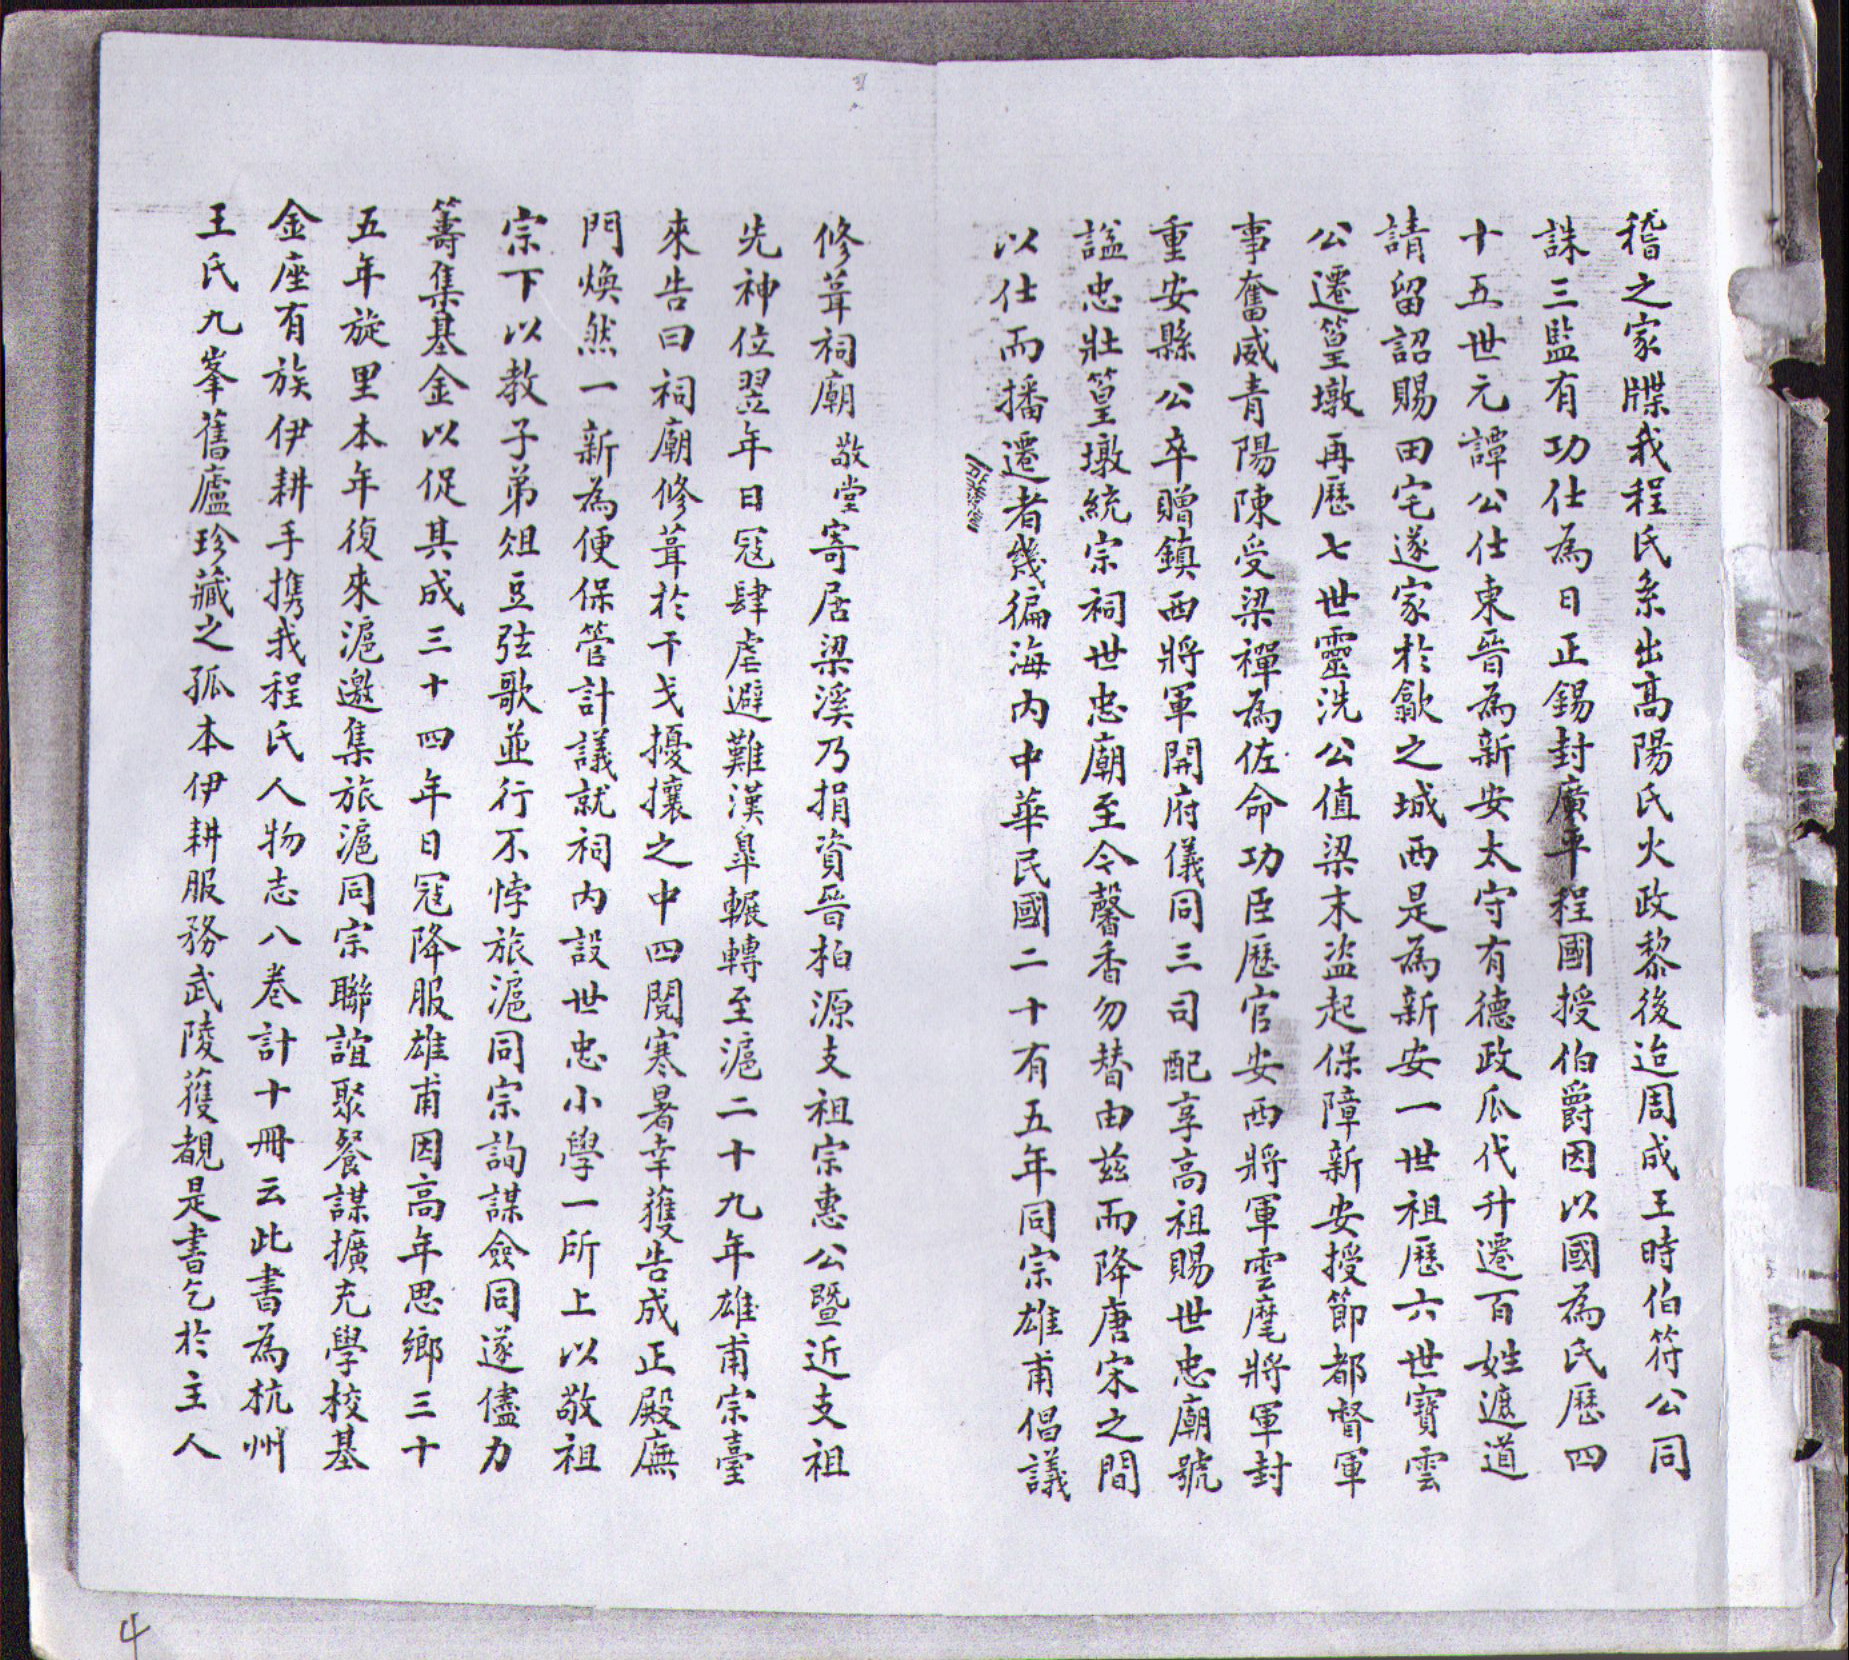 稽之家牒我程氏系出高陽氏火政黎後迨周成王時伯符公同
誅三監有功仕為日正錫封廣平程國授伯爵因以國為氏歷四
十五世元譚公仕東晉為新安太守有德政瓜代升遷百姓遮道
請留詔賜田宅遂家於歙之城西是為新安一世祖歷六世寶雲
公遷篁墩再歷七世靈洗公值梁末盜起保障新安授節都督軍
事奮威青陽陳受梁禪為佐命功臣歷官安西將軍雲麾將軍封
重安縣公卒贈鎮西將軍開府儀同三司配享高祖賜世忠廟號
謚忠壯篁墩統宗祠世忠廟至今馨香勿替由茲而降唐宋之間
以仕而播遷者幾徧海內中華民國二十有五年同宗雄甫倡議
修葺祠廟敬堂寄居梁溪乃捐資晉柏源支祖宗惠公暨近支祖
先神位翌年日寇肆虐避難漢臯輾轉至滬二十九年雄甫宗臺
來告曰祠廟修葺於干戈擾攘之中四閱寒暑幸獲告成正殿廡
門煥然一新為便保管計議就祠內設世忠小學一所上以敬祖
宗下以教子弟俎豆弦歌並行不悖旅滬同宗詢謀僉同遂儘力
籌集基金以促其成三十四年日寇降服雄甫因高年思鄉三十
五年旋里本年復來滬邀集旅滬同宗聯誼聚餐謀擴充學校基
金座有族伊耕手携我程氏人物志八卷計十冊云此書為杭州
王氏九峯舊廬珍藏之孤本伊耕服務武陵獲覩是書乞於主人
4